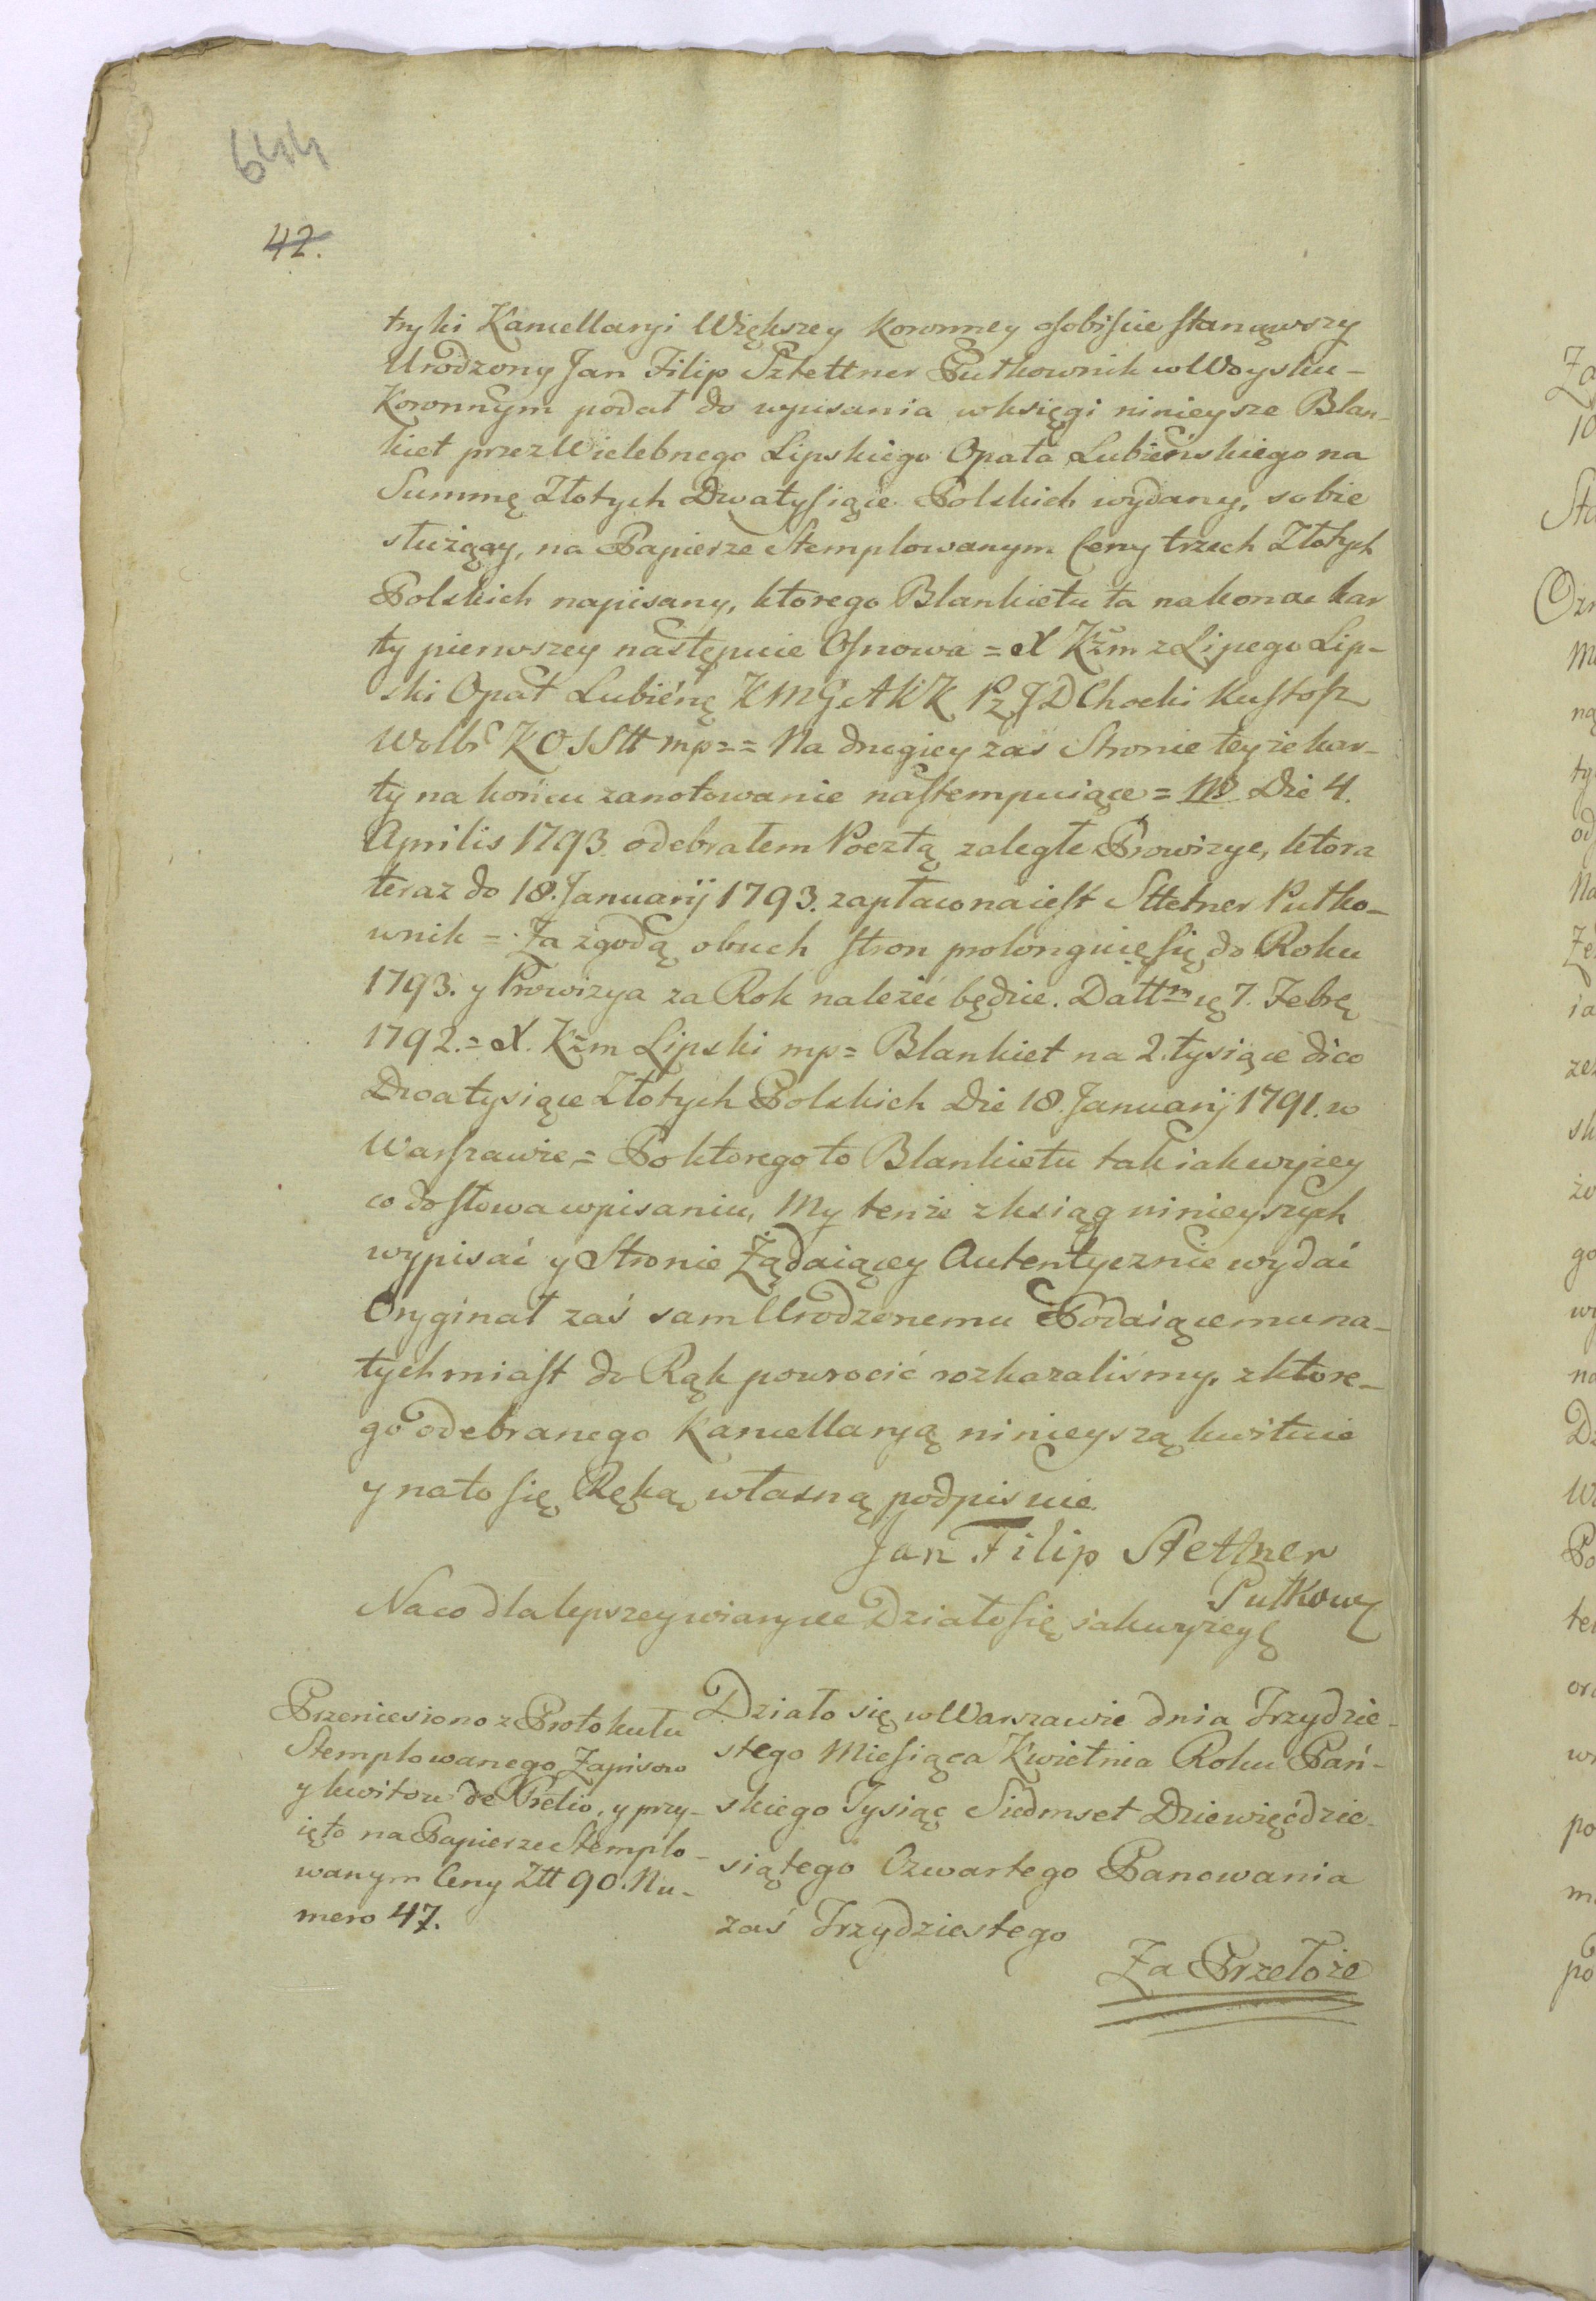 644
42.
tryki Kancellaryi Większey Koronney osobiscie stanąwszy
Urodzony Jan Filip Sztettner Pułkownik w Woysku-
Koronnym podał do wpisania w księgi ninieysze Blan-
kiet przez Wielebnego Lipskiego Opata Lubieńskiego na
Summę Złotych Dwatysiące Polskich wydany, sobie
służący, na Papierze Stemplowanym Ceny trzech Złotych
Polskich napisany, ktorego Blankietu ta na koncu kar
ty pierwszey następuie Osnowa = X Kzm z Lipego Lip-
ski Opat Lubieńę KMGAKK PzJD Chocki Kustosz
Wolbr KOSStt mp == Na drugiey zaś Stronie teyże kar-
ty na końcu zanotowanie nastempuiące = NB Die 4.
Aprilis 1793. odebrałem Pocztą zaległe Prowizye, ktora
teraz do 18. Januarij 1793. zapłacona iest Sttetner Pułko-
wnik = Za zgodą obuch stron prolonguię się do Roku
1793. y Prowizya za Rok należeć będzie. Datt 7. Febrę
1792. = X. Kzm Lipski mp = Blankiet na 2. tysiące dico
Dwatysiące Złotych Polskich Die 18. Januarij 1791. w
Warszawie = Po ktorego to Blankietu tak iak wyżey
co do słowa wpisaniu, My tenże z ksiąg ninieyszych
wypisać y Stronie Żądaiącey Autentycznie wydać
Oryginał zaś sam Urodzonemu Podaiącemu na-
tychmiast do Rąk powrocić rozkazaliśmy, z ktore-
go odebranego Kancellaryą ninieyszą kwituie
y na to się Ręką własną podpisuie.
Jan Filip Stettner
Pułkow
Na co dla lepszey wiary etc Działo się iak wyżey
Przeniesiono z Protokułu
Stemplowanego Zapisow
y kwitow de Prelio, y przy-
ięto na Papierze Stemplo-
wanym Ceny Ztt 90. Nu-
mero 47.
Działo się w Warszawie dnia Trzydzie-
stego Miesiąca Kwietnia Roku Pań-
skiego Tysiąc Siedmset Dziewięćdzie-
siątego Czwartego Panowania
zaś Trzydziestego
Za Przełoże